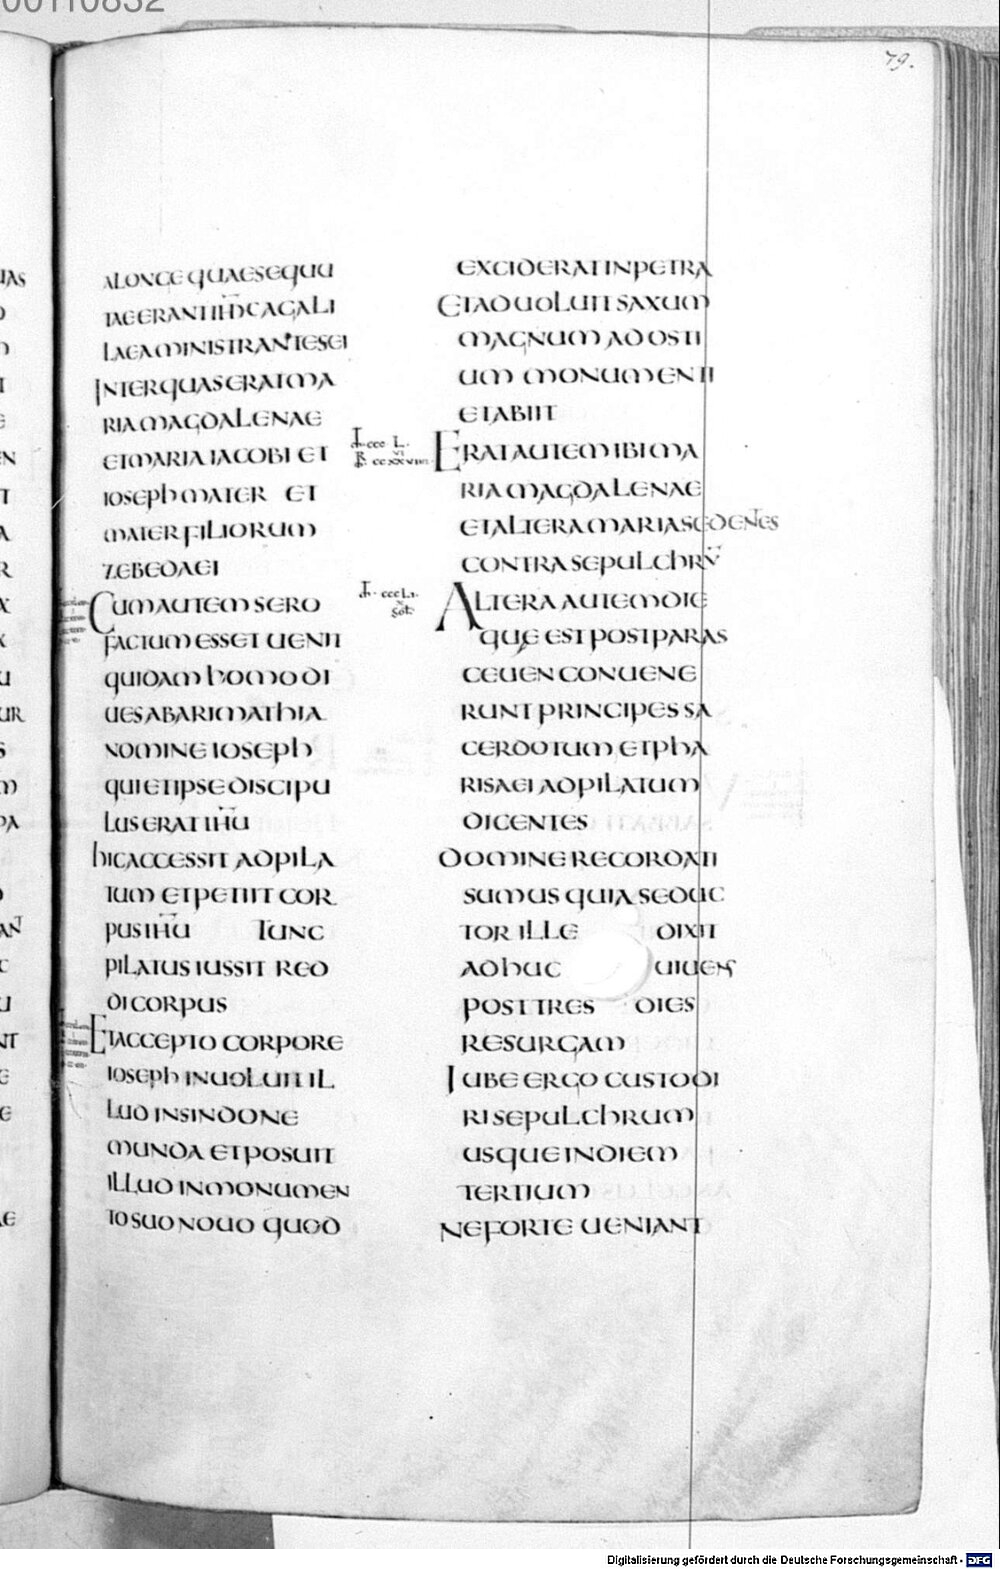 79.
ALONGE QUAE SEQUU
TAE ERANT IHM A GALI
LAEA MINISTRANTES EI
INTER QUAS ERAT MA
RIA MAGDALENAE
ET MARIA IACOBI ET
IOSEPH MATER ET
MATER FILIORUM
ZEBEDAEI
CUM AUTEM SERO
FACTUM ESSET UENIT
QUIDAM HOMO DI
UES AB ARIMATHIA
NOMINE IOSEPH
QUI ET IPSE DISCIPU
LUS ERAT IHU
HIC ACCESSIT AD PILA
TUM ET PETIIT COR
PUS IHU TUNC
PILATUS IUSSIT RED
DI CORPUS
ET ACCEPTO CORPORE
IOSEPH INUOLUIT IL
LUD IN SINDONE
MUNDA ET POSUIT
ILLUD IN MONUMEN
TO SUO NOUO QUOD
EXCIDERAT IN PETRA
ET ADUOLUIT SAXUM
MAGNUM AD OSTI
UM MONUMENTI
ET ABIIT
ERAT AUTEM IBI MA
RIA MAGDALENAE
ET ALTERA MARIA SEDENTES
CONTRA SEPULCHRU
ccc LI.
ALTERA AUTEM DIE
QUE EST POST PARAS
CEUEN CONUENE
RUNT PRINCIPES SA
CERDOTUM ET PHA
RISAEI AD PILATUM
DICENTES
DOMINE RECORDATI
SUMUS QUIA SEDUC
TOR ILLE DIXIT
ADHUC UIUENS
POST TRES DIES
RESURGAM
IUBE ERGO CUSTODI
RI SEPULCHRUM
USQUE IN DIEM
TERTIUM
NE FORTE UENIANT
Digitalisierung gefördert durch die Deutsche Forschungsgemeinschaft - DFG